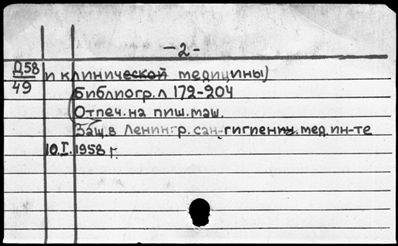 -2-
Д58 и клинической медицины)
49 Библиогр. л 172-204
Отпеч. на пиш. маш.
Защ. в Ленингр. сан-гигиенич. мед. ин-те
10.I.1958 г.